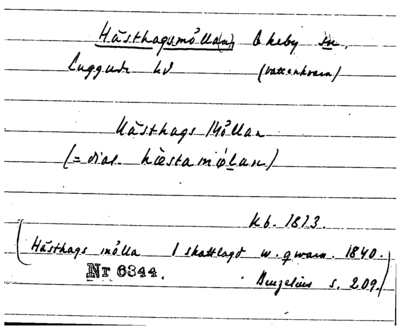 Hästhagsmölla(n) Ekeby sn.
Luggude hd (vattenkvarn)
Hästhags Möllan
(= dial. hästamølan)
kb. 1813.
(Hästhags mölla 1 skattlagd w. qwarn. 1840.
Nr 6344. Berzelius s. 209.)